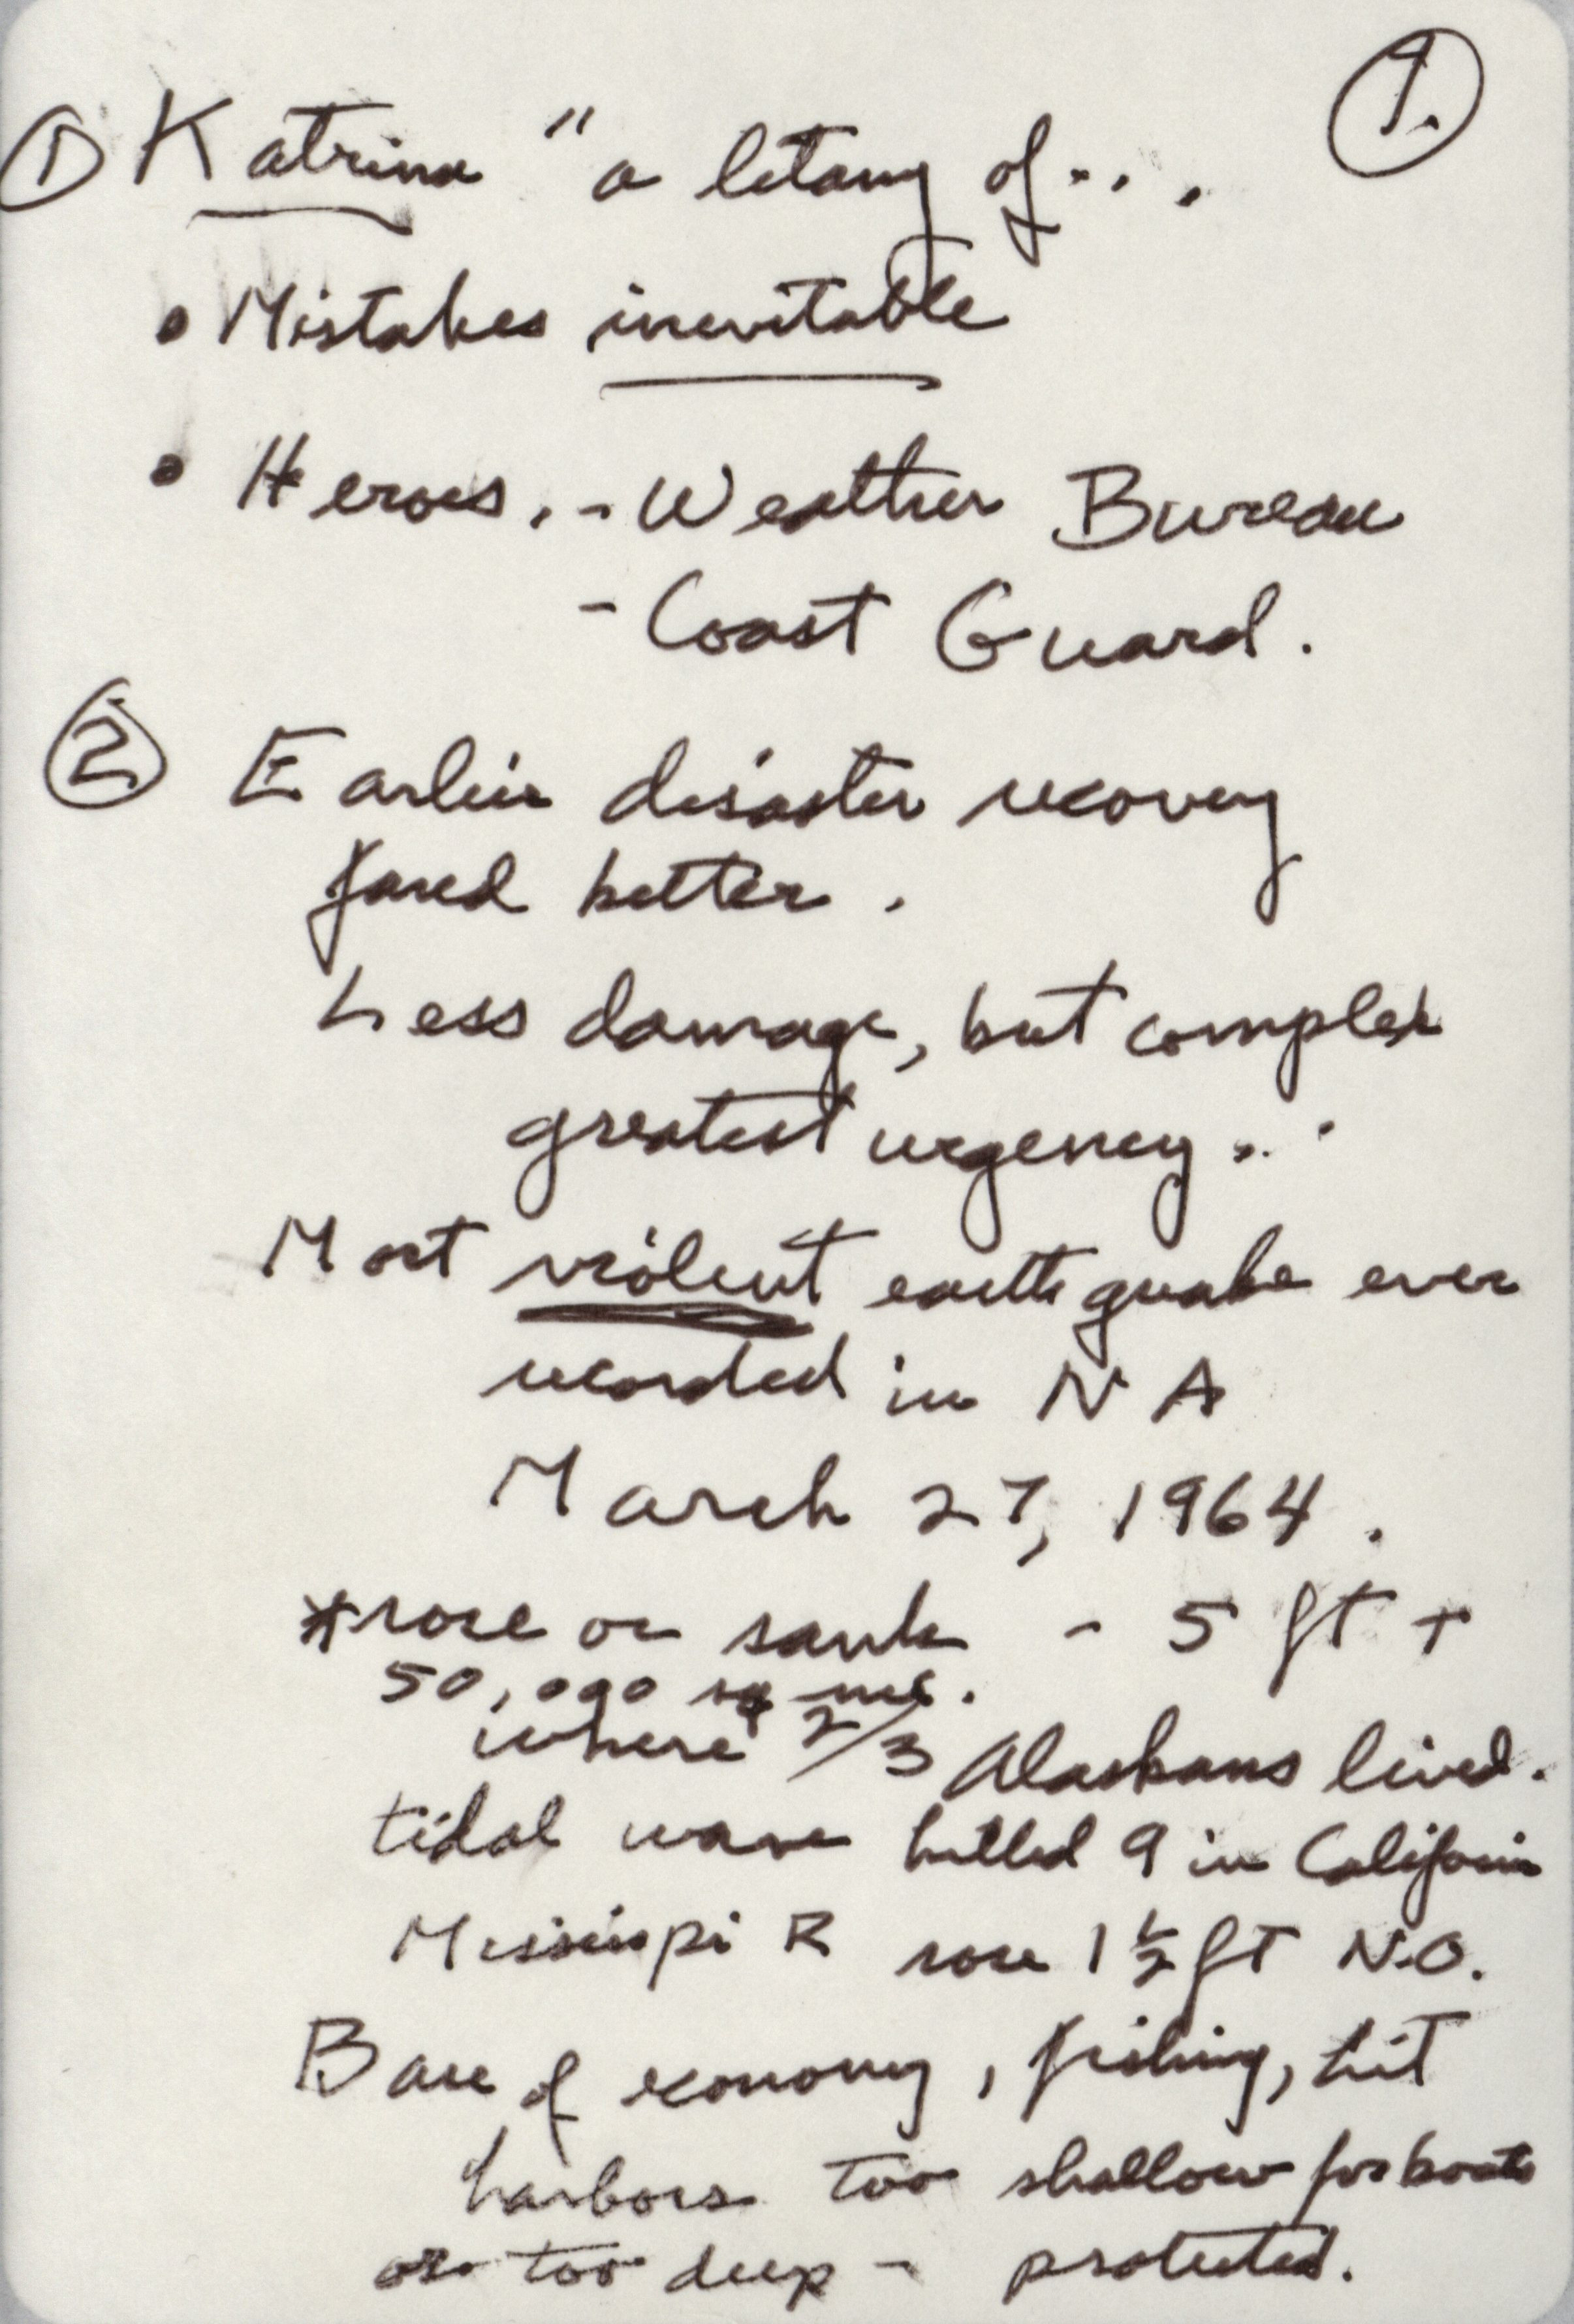 1.
① Katrina " a litany of . . .
• Mistakes inevitable
• Heroes. - Weather Bureau
- Coast Guard.
② Earlier disaster recovery
fared better.
Less damage, but complex
greatest urgency . . .
Most violent earthquake ever
recorded in N A
March 27, 1964.
* rose or sank - 5 ft +
50,000 sq mi.
where 2/3 Alaskans lived.
tidal wave killed 9 in California
Mississippi R rose 1 ½ ft N.O.
Base of economy, fishing, hit
harbors too shallow for boats
or too deep - protected.